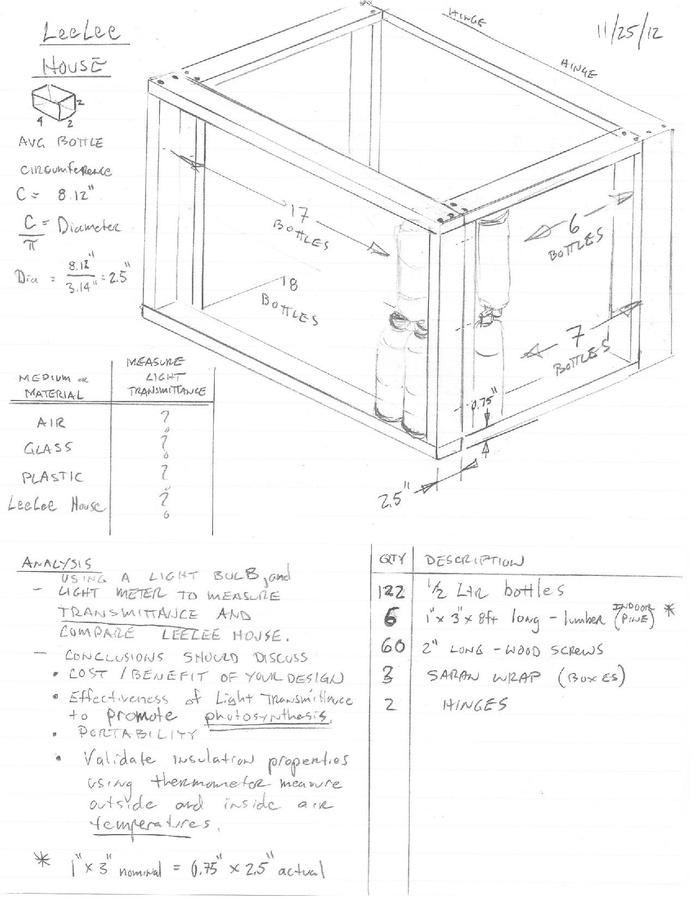 LeeLee
HOUSE
11/25/12
HINGE
HINGE
4 2 2
AVG BOTTLE
CIRCUMFERENCE
C = 8.12"
C/π = Diameter
Dia = 8.12"/3.14" = 2.5"
17
BOTTLES
18
BOTTLES
6
BOTTLES
7
BOTTLES
0.75"
2.5"
MEDIUM or MATERIAL
MEASURE LIGHT TRANSMITTANCE
AIR ?
GLASS ?
PLASTIC ?
LeeLee House ?
ANALYSIS
- USING A LIGHT BULB, and
LIGHT METER TO MEASURE
TRANSMITTANCE AND
COMPARE LEELEE HOUSE.
- CONCLUSIONS SHOULD DISCUSS
• COST / BENEFIT OF YOUR DESIGN
• Effectiveness of Light Transmittance
to promote photosynthesis.
• PORTABILITY
• Validate insulation properties
using thermometer measure
outside and inside air
temperatures.
* 1" x 3" nominal = 0.75" x 2.5" actual
QTY DESCRIPTION
122 1/2 Ltr bottles
6 1" x 3" x 8ft long - lumber (INDOOR PINE) *
60 2" LONG - WOOD SCREWS
3 SARAN WRAP (BOXES)
2 HINGES